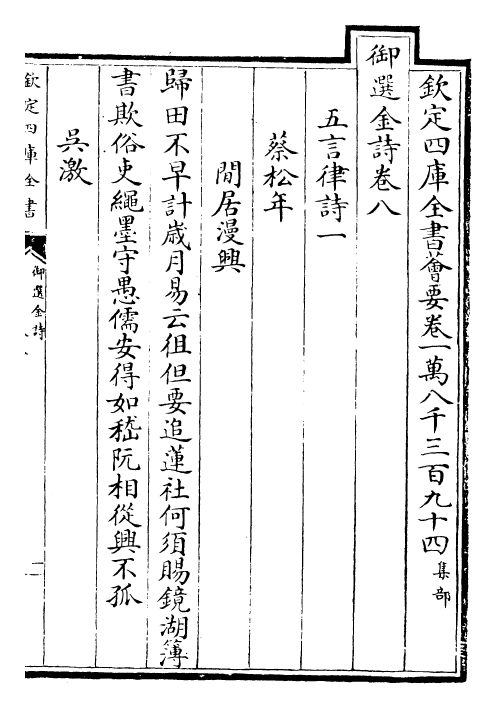 欽定四庫全書薈要卷一萬八千三百九十四集部
御選金詩卷八
五言律詩一
蔡松年
閒居漫興
歸田不早計歲月易云徂但要追蓮社何須賜鏡湖簿
書欺俗吏繩墨守愚儒安得如嵇阮相從興不孤
吳激
欽定四庫全書
御選金詩